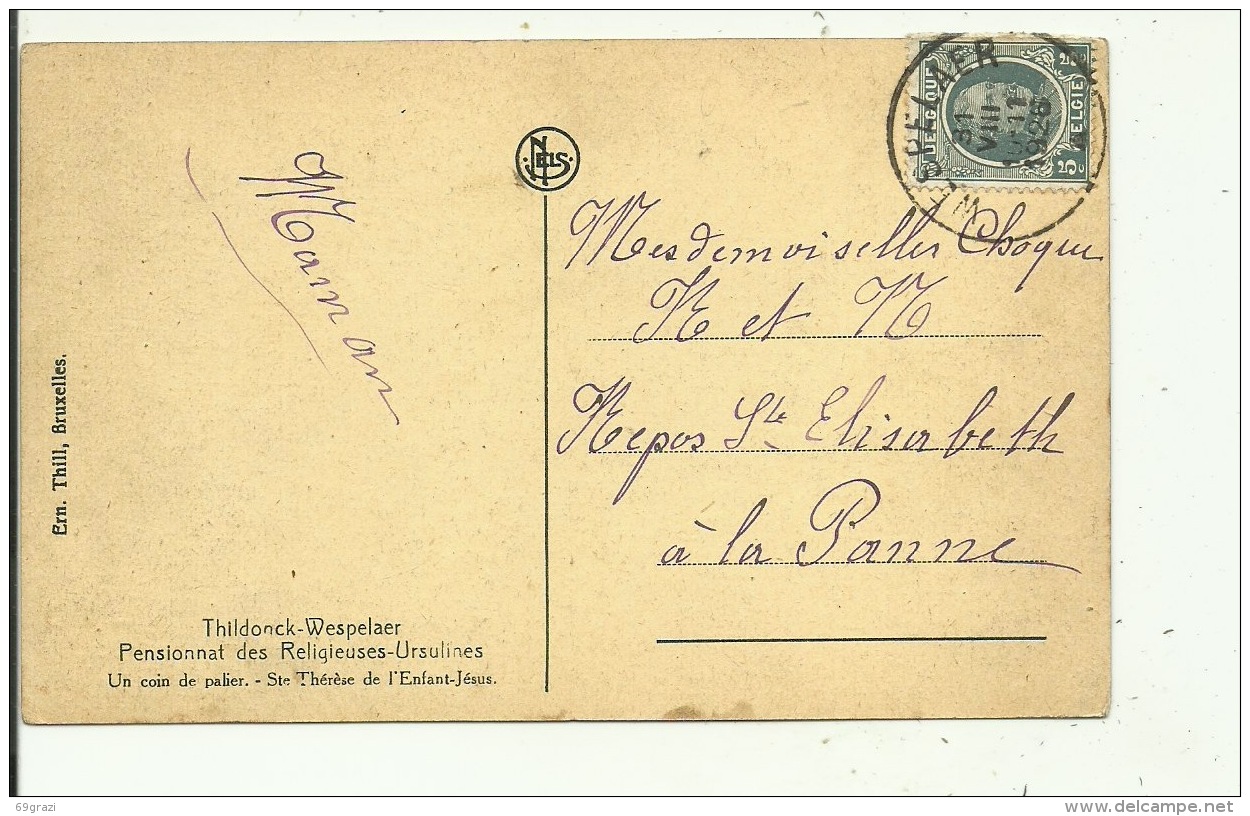 BELGIQUE
BELGIË
5c
WESPELAER
31
VIII
1926
NELS
Maman
Mesdemoiselles Choque
R et M
Repos Ste Elisabeth
à la Panne
Ern. Thill, Bruxelles.
Thildonck-Wespelaer
Pensionnat des Religieuses-Ursulines
Un coin de palier. - Ste Thérèse de l'Enfant-Jésus.
69grazi
delcampe.net